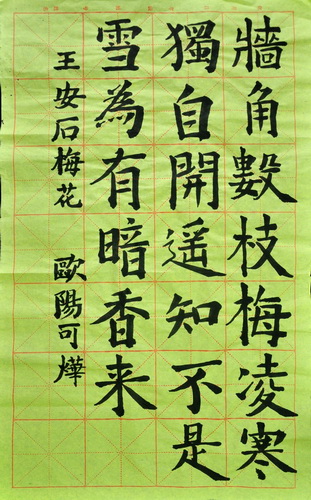 牆角數枝梅凌寒
獨自開遥知不是
雪為有暗香来
王安石梅花 歐陽可燁